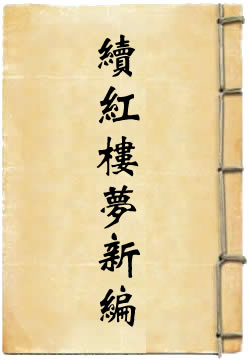 續紅樓夢新編